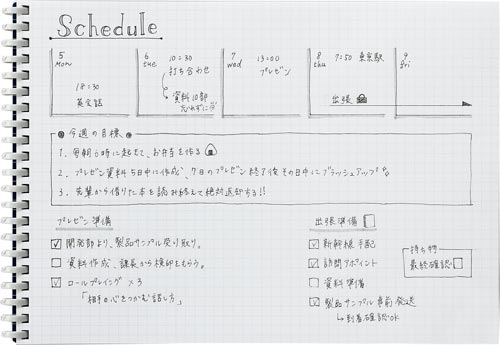 Schedule
5 Mon
18:30
英会話
6 tue
10:30
打ち合わせ
資料10部
忘れずに!!
7 wed
13:00
プレゼン
8 thu
7:50 東京駅
出張
9 Fri
今週の目標
1. 毎朝6時に起きて、お弁当を作る
2. プレゼン資料5日中に作成、7日のプレゼン終了後その日中にブラッシュアップ
3. 先輩から借りた本を読み終えて絶対返却する!!
プレゼン準備
開発部より、製品サンプル受け取り。
資料作成、課長から検印をもらう。
ロールプレイング×3
「相手の心をつかむ話し方」
出張準備
新幹線手配
訪問アポイント
資料準備
製品サンプル事前発送
到着確認OK
持ち物
最終確認